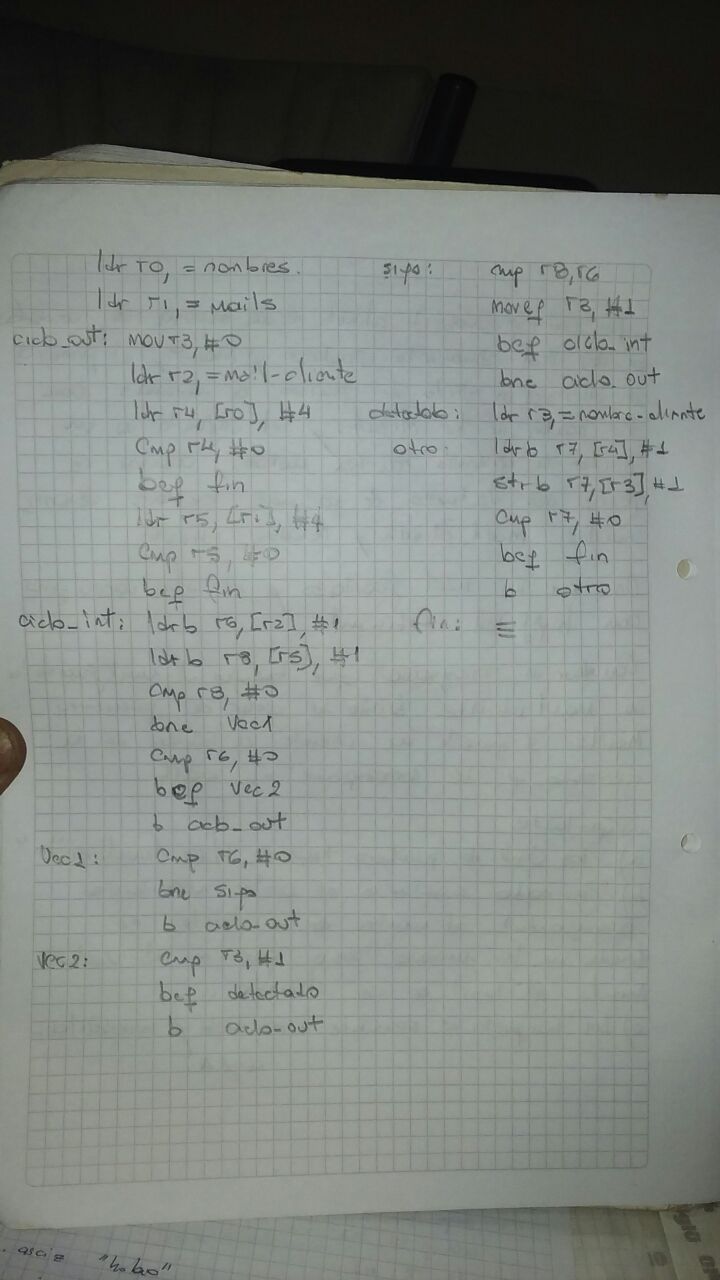 ldr r0, = nombres.
ldr r1, = mails
ciclo_out: mov r3, #0
ldr r2, = mail-cliente
ldr r4, [r0], #4
Cmp r4, #0
beq fin
ldr r5, [r1], #4
Cmp r5, #0
beq fin
ciclo_int: ldrb r6, [r2], #1
ldrb r8, [r5], #1
Cmp r8, #0
bne Vec1
Cmp r6, #0
beq Vec2
b ciclo_out
Vec1: Cmp r6, #0
bne sipo
b ciclo-out
Vec2: Cmp r3, #1
beq detectado
b ciclo-out
sipo: cmp r8, r6
moveq r3, #1
beq ciclo_int
bne ciclo_out
detectado: ldr r3, = nombre-cliente
otro: ldrb r7, [r4], #1
strb r7, [r3], #1
Cmp r7, #0
beq fin
b otro
fin:
. asciz